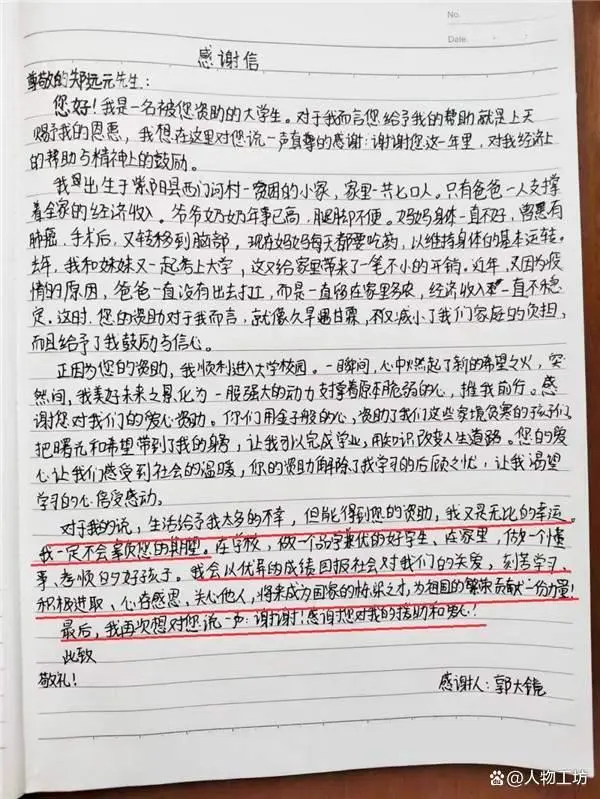 No.
Date.
感谢信
尊敬的郑远元先生：
您好！我是一名被您资助的大学生。对于我而言您给予我的帮助就是上天
赐予我的恩惠，我想在这里对您说一声真挚的感谢：谢谢您这一年里，对我经济上
的帮助与精神上的鼓励。
我出生于紫阳县西门河村一贫困的小家，家里一共七口人。只有爸爸一人支撑
着全家的经济收入。爷爷奶奶年事已高，腿脚不便。妈妈身体一直不好，曾患有
肺癌，手术后，又转移到脑部，现在妈妈每天都要吃药，以维持身体的基本运转。
去年，我和妹妹又一起考上大学，这又给家里带来了一笔不小的开销。近年，又因为疫
情的原因，爸爸一直没有出去打工，而是一直够在家里务农，经济收入一直不稳
定。这时，您的资助对于我而言，就像久旱遇甘霖，不仅减小了我们家庭的负担，
而且给予了我鼓励与信心。
正因为您的资助，我顺利进入大学校园。一瞬间，心中燃起了新的希望之火，突
然间，我美好未来之景化为一股强大的动力支撑着原本脆弱的心，推我前行。感
谢您对我们的爱心资助。你们用金子般的心，资助了我们这些家境贫寒的孩子们，
把曙光和希望带到了我的身旁，让我可以完成学业，用知识改变人生道路。您的爱
心让我们感受到社会的温暖，你的资助解除了我学习的后顾之忧，让我渴望
学习的心倍受感动。
对于我的说，生活给予我太多的不幸，但能得到您的资助，我又是无比的幸运。
我一定不会辜负您的期望。在学校，做一个品学兼优的好学生、在家里，做一个懂
事、孝顺的好孩子。我会以优异的成绩回报社会对我们的关爱，刻苦学习、
积极进取、心存感恩，关心他人，将来成为国家的栋梁之才，为祖国的繁荣贡献一份力量！
最后，我再次想对您说一声：谢谢！感谢您对我的援助和爱心！
此致
敬礼！
感谢人：郭大镜
人物工坊